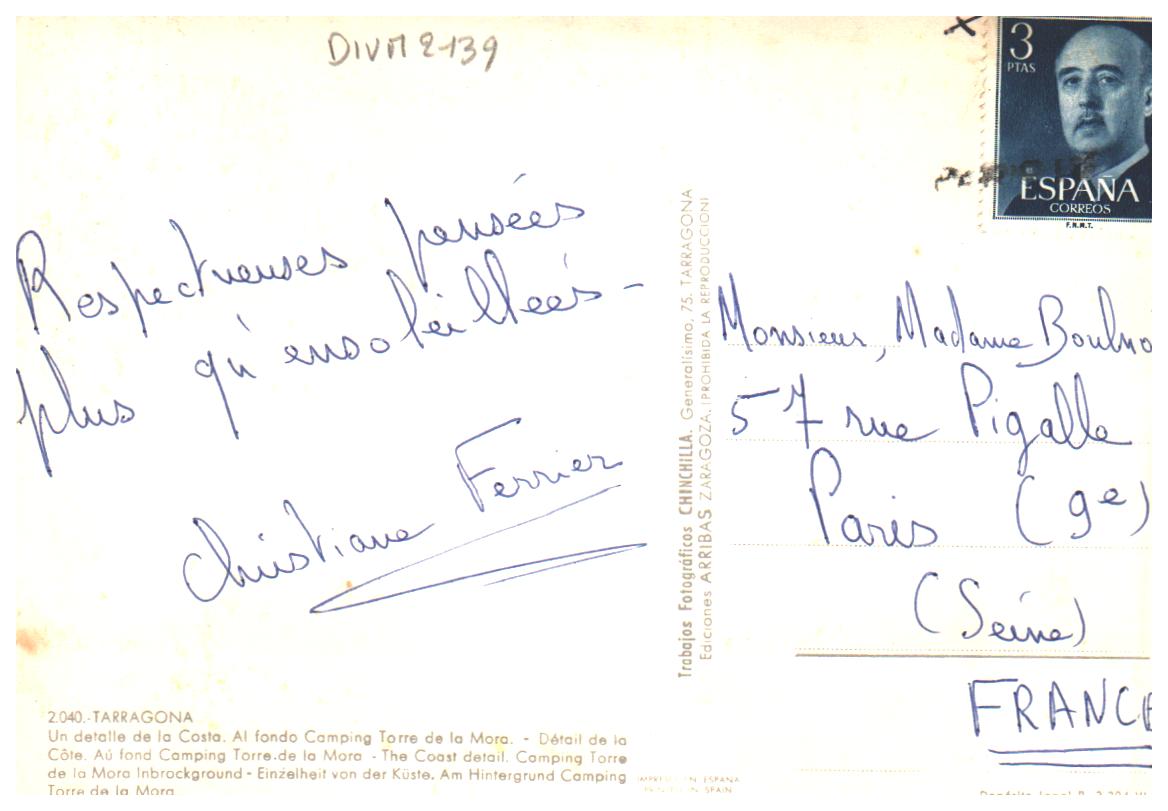 DIVM 2-139
3
PTAS
ESPAÑA
CORREOS
F.N.M.T.
Respectueuses pensées
plus qu'ensoleillées -
Christiane Ferrier
Trabajos Fotográficos CHINCHILLA. Generalísimo, 75. TARRAGONA
Ediciones ARRIBAS ZARAGOZA. (PROHIBIDA LA REPRODUCCION)
Monsieur, Madame
57 rue Pigalle
Paris (9e)
(Seine)
FRANCE
2.040.-TARRAGONA
Un detalle de la Costa. Al fondo Camping Torre de la Mora. - Détail de la
Côte. Aú fond Camping Torre de la Mora - The Coast detail. Camping Torre
de la Mora Inbrockground - Einzelheit von der Küste. Am Hintergrund Camping
Torre de la Mora.
IMPRESO EN ESPAÑA
PRINTED IN SPAIN